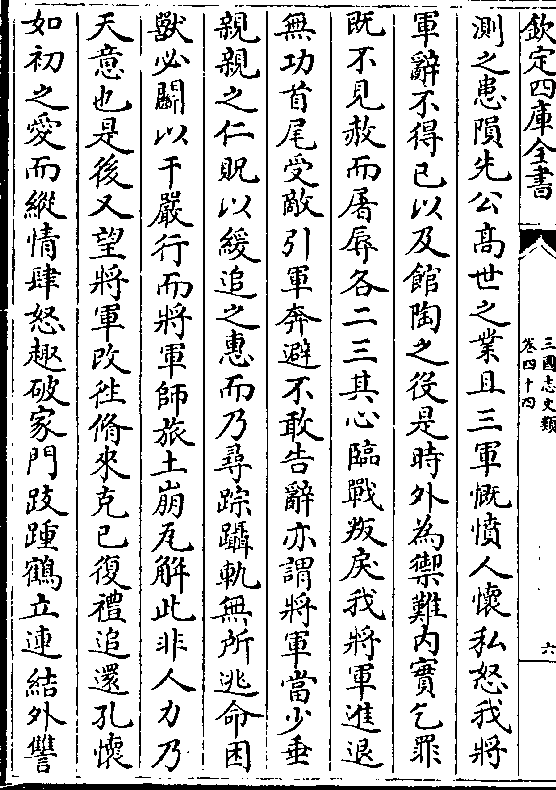 欽定四庫全書
三國志文類
卷四十四
六
測之患隕先公髙世之業且三軍慨憤人懷私怒我將
軍辭不得已以及館陶之役是時外為禦難内實乞罪
既不見赦而屠辱各二三其心臨戰叛戾我將軍進退
無功首尾受敵引軍奔避不敢告辭亦謂將軍當少垂
親親之仁貺以緩追之惠而乃尋踪躡軌無所逃命困
獸必鬭以干嚴行而將軍師旅土崩瓦解此非人力乃
天意也是後又望將軍改徃脩來克已復禮追還孔懷
如初之愛而縱情肆怒趣破家門跂踵鶴立連結外讐